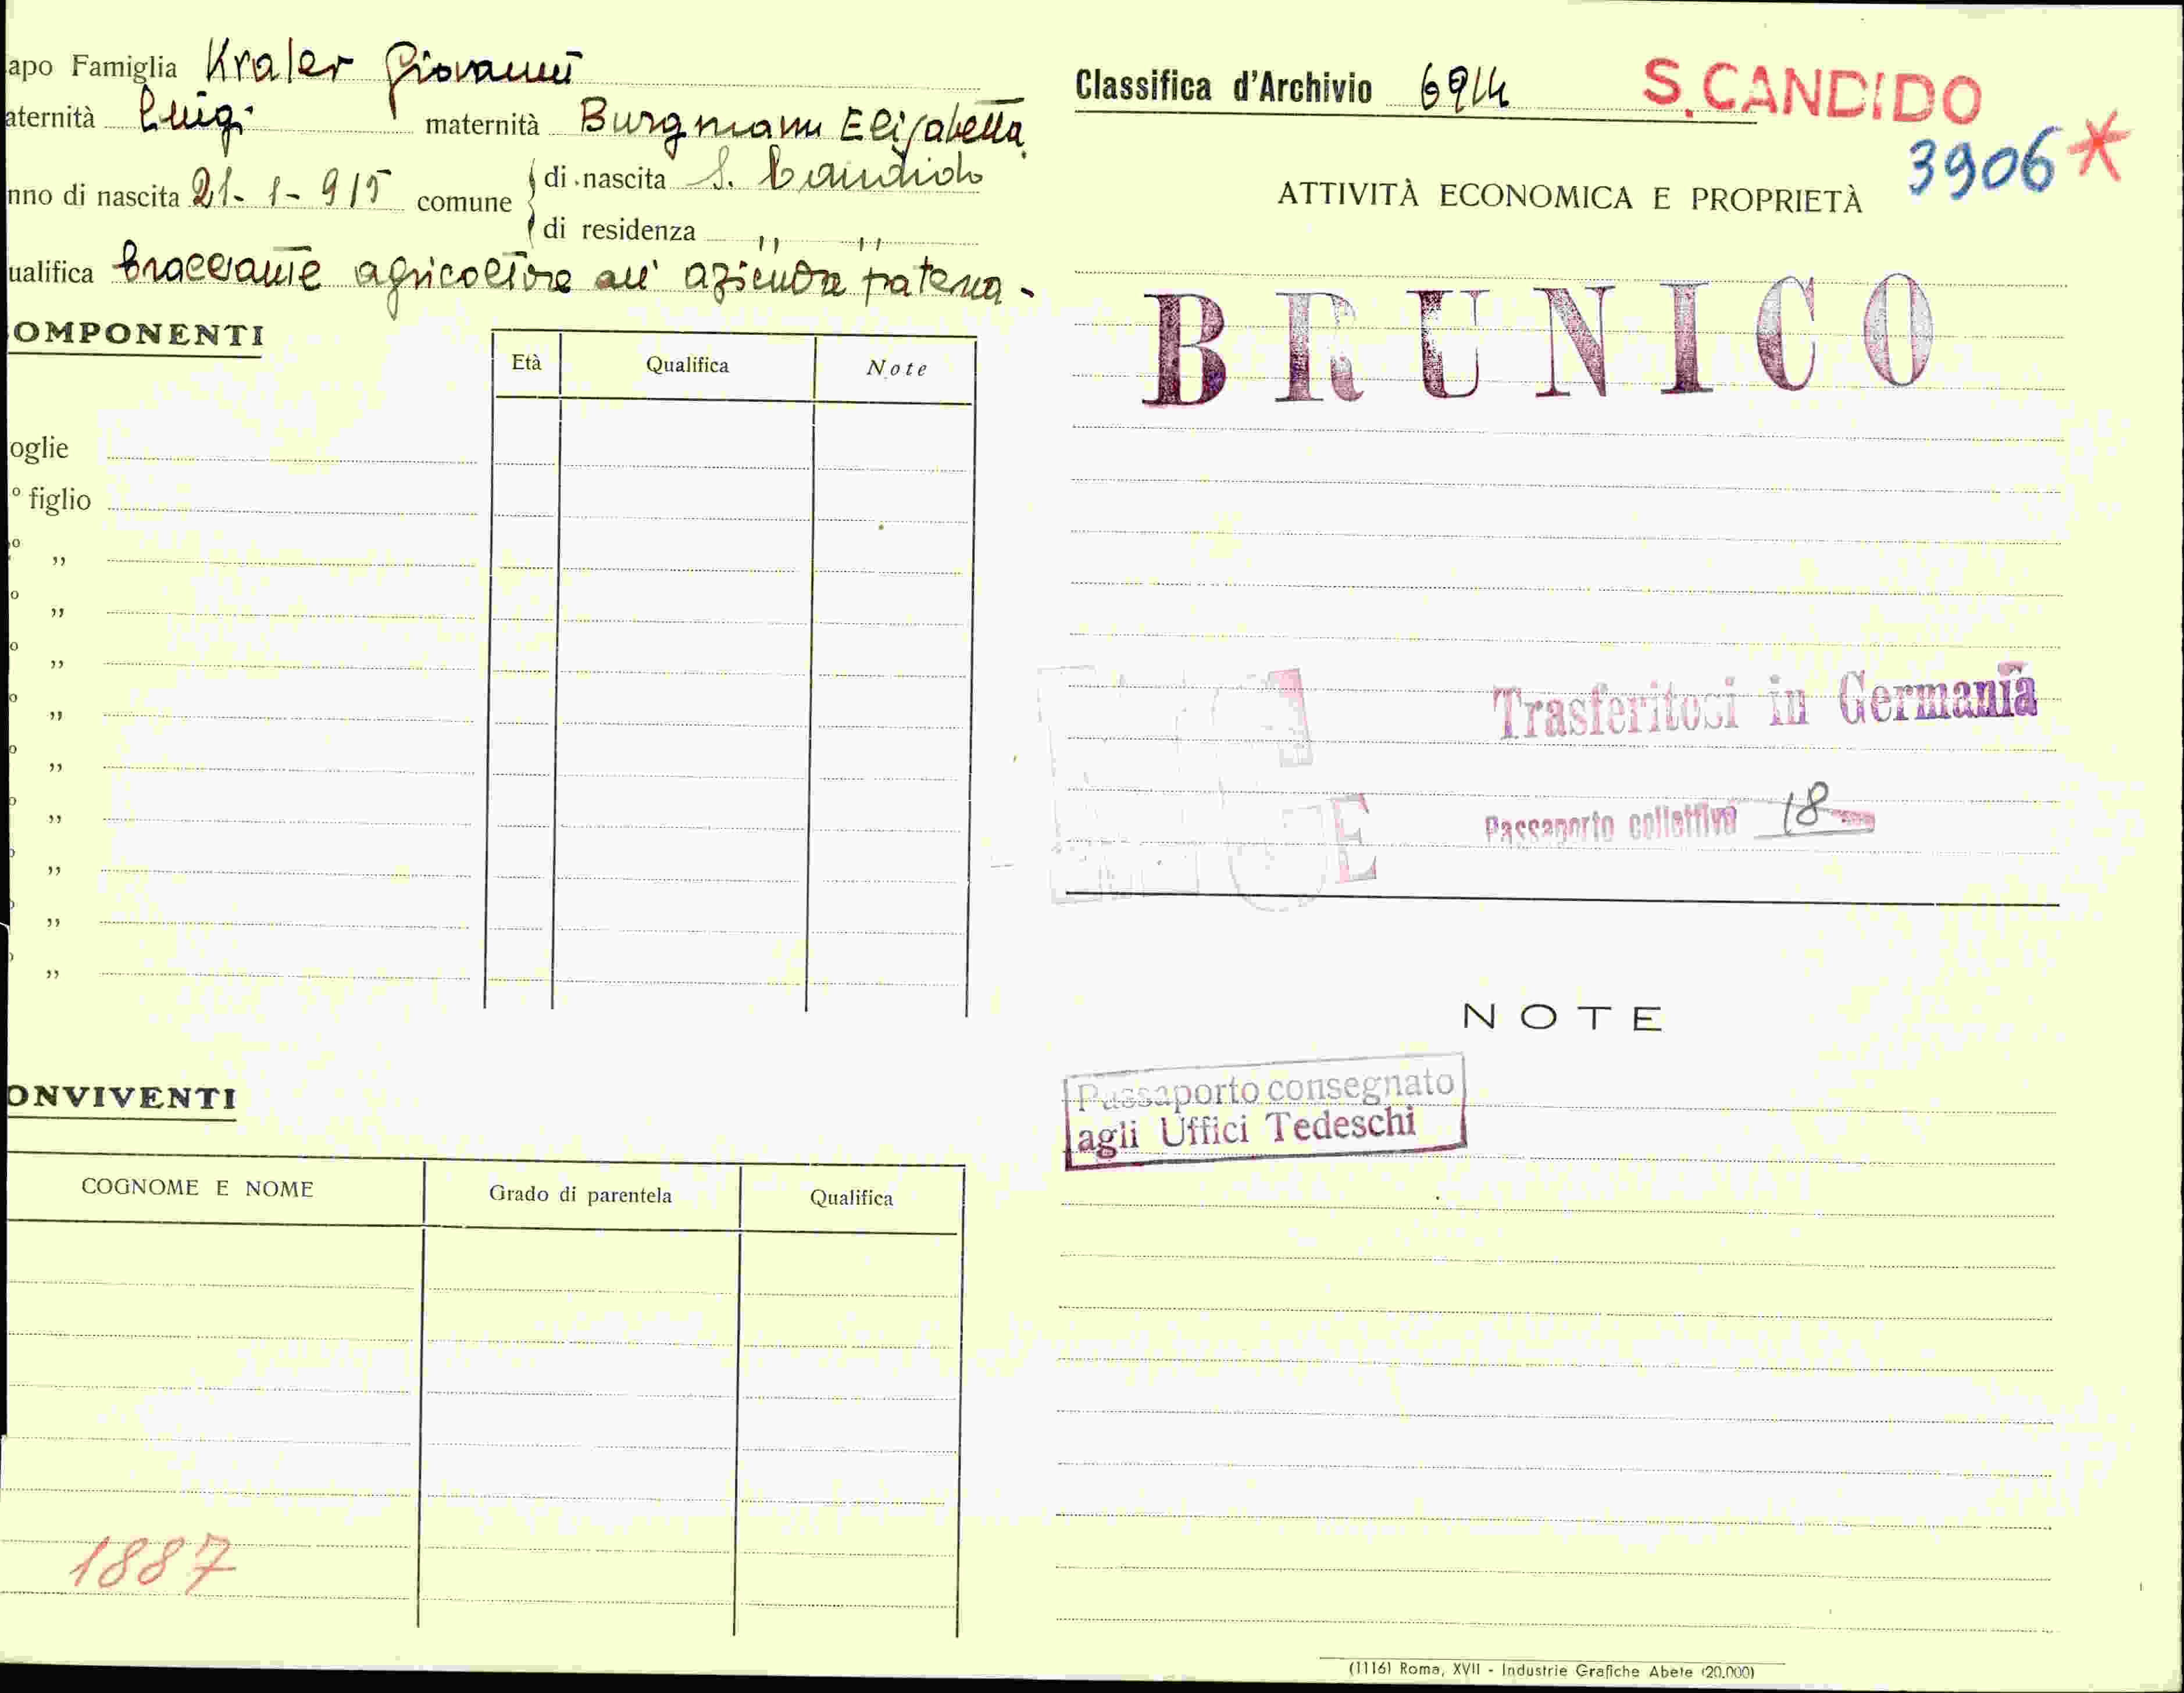 apo Famiglia Kraler Giovanni
aternità Luigi maternità Burgmann Elisabetta
nno di nascita 21-1-915 comune di nascita S. Candido
di residenza ,, ,,
ualifica bracciante agricoltore all' azienda paterna -
OMPONENTI
Età Qualifica Note
oglie
° figlio
° ,,
° ,,
° ,,
° ,,
° ,,
° ,,
° ,,
° ,,
° ,,
ONVIVENTI
COGNOME E NOME Grado di parentela Qualifica
1887
Classifica d'Archivio 6914 S. CANDIDO
3906*
ATTIVITÀ ECONOMICA E PROPRIETÀ
BRUNICO
Trasferitosi in Germania
Passaporto collettivo 18
NOTE
Passaporto consegnato
agli Uffici Tedeschi
(1116) Roma, XVII - Industrie Grafiche Abete (20.000)